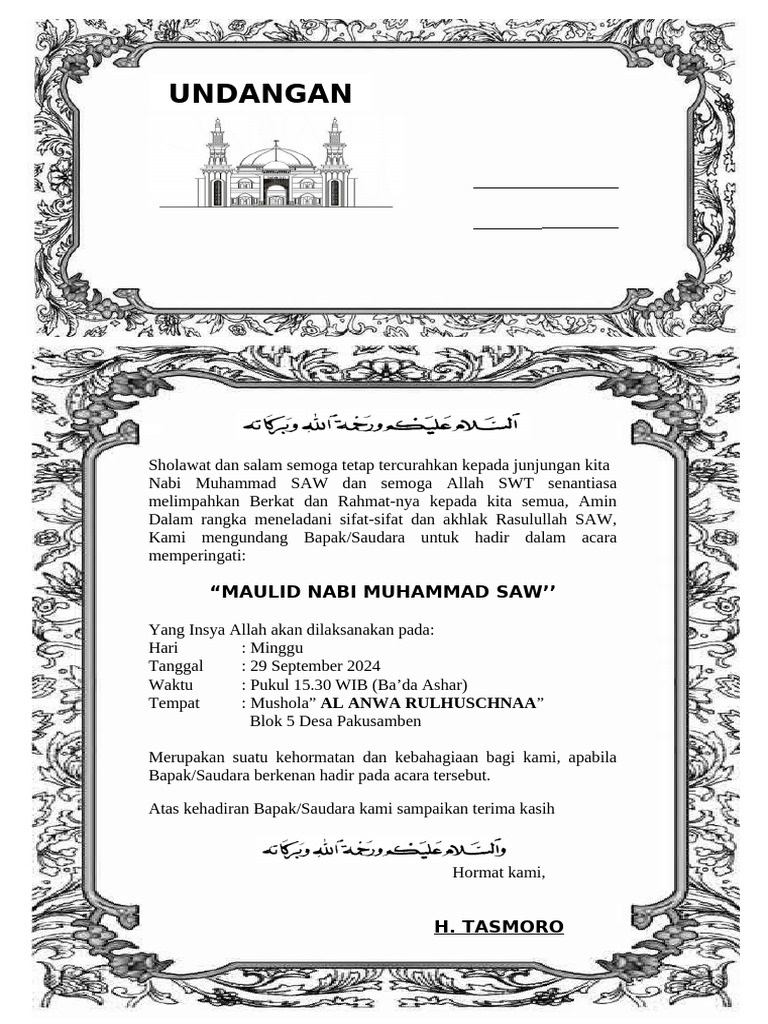 UNDANGAN
السلام عليكم ورحمة الله وبركاته
Sholawat dan salam semoga tetap tercurahkan kepada junjungan kita
Nabi Muhammad SAW dan semoga Allah SWT senantiasa
melimpahkan Berkat dan Rahmat-nya kepada kita semua, Amin
Dalam rangka meneladani sifat-sifat dan akhlak Rasulullah SAW,
Kami mengundang Bapak/Saudara untuk hadir dalam acara
memperingati:
“MAULID NABI MUHAMMAD SAW’’
Yang Insya Allah akan dilaksanakan pada:
Hari : Minggu
Tanggal : 29 September 2024
Waktu : Pukul 15.30 WIB (Ba’da Ashar)
Tempat : Mushola” AL ANWA RULHUSCHNAA”
Blok 5 Desa Pakusamben
Merupakan suatu kehormatan dan kebahagiaan bagi kami, apabila
Bapak/Saudara berkenan hadir pada acara tersebut.
Atas kehadiran Bapak/Saudara kami sampaikan terima kasih
والسلام عليكم ورحمة الله وبركاته
Hormat kami,
H. TASMORO